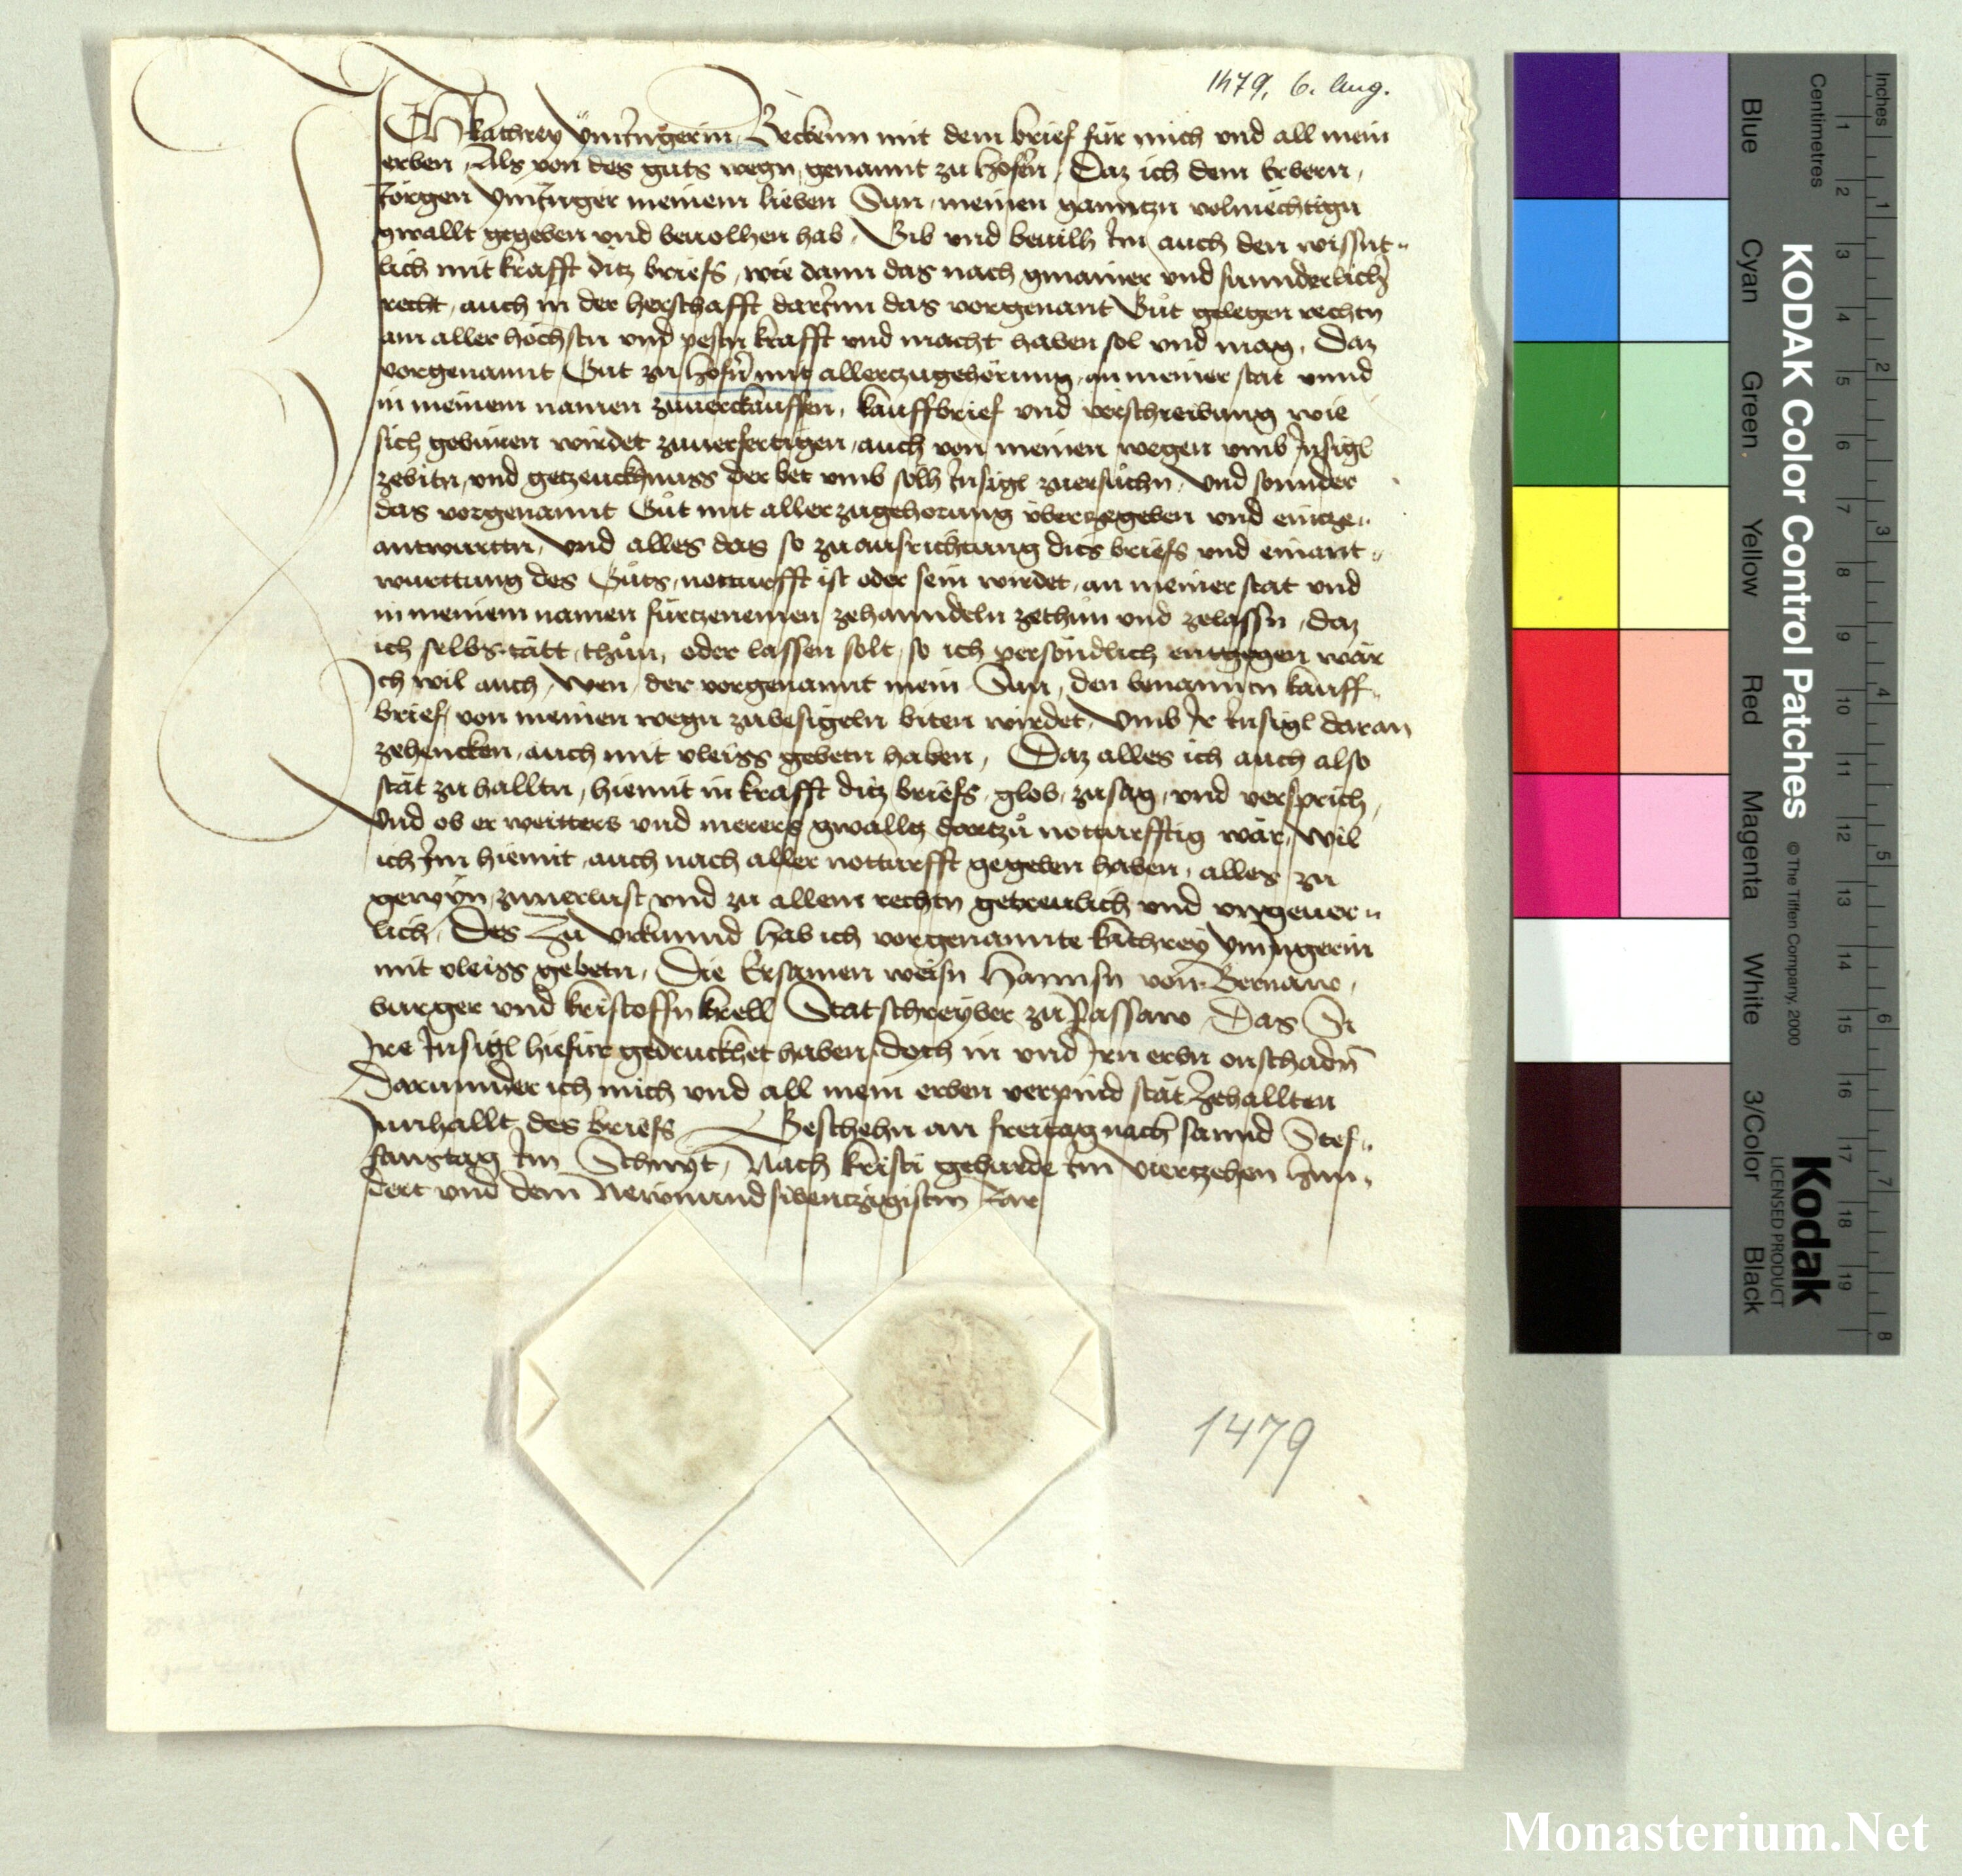 1479, 6. Aug.
Ich kathrey Ymtzingerin Beckenn mit dem brief für mich vnd all mein
erben, Als von des guts wegn, genannt zu Hofen, Daz ich dem Erbern,
Jörgen ymtzinger meinem lieben Sun, meinen ganntzn volmechtign
gwallt gegeben vnd beuolhen hab, Gib vnd beuilh Im auch den wissnt„
lich mit krafft ditz briefs, wie dann das nach gmainer vnd sunnderlich
recht, auch in der herschafft darinn das vorgenant Gůt gelegen rechtn
am aller höchstn vnd pestn krafft vnd macht haben sol vnd mag, Daz
vorgenannt Gut zu Hofn mit allerczugehörung, an meiner stat vnnd
in meinem namen zuuerckauffen, kauffbrief vnd verschreibung wie
sich gebüren wirdet zuuerfertigen, auch von meinen wegen vmb Insigl
zebitn, vnd getzeuckhnuss der bet vmb solh Insigl zuersůchn, Vnd sonnder
das vorgenannt Gůt mit aller zugehorung vbergegeben vnd eintze„
antwurttn, Vnd alles das so zu aufrichtung dits briefs vnd einant„
wurttung des Gůts, notturfft ist oder sein wirdet, an meiner stat vnd
in meinem namen fürczenemen zehanndeln zethun vnd zelassn, daz
ich selbs tätt, thůn, oder lassen solt, so ich persöndlich entgegen wär
Ich wil auch, Wen, der vorgenannt mein Sun, den benanntn kauff„
brief, von meinen wegn zubesigeln biten wirdet, Vmb Ir Insigl daran
zehencken, auch mit vleiss gebetn haben, Daz alles ich auch also
stät zu halltn, hiemit in krafft ditz briefs, glob, zusag, vnd versprich,
Vnd ob er weitters vnd merers gwalltz dartzů notturfftig wär, Wil
ich Im hiemit, auch nach aller notturfft gegeben haben, alles zu
gewyn, zuuerlust, vnd zu allem rechtn getreulich vnd vngeuer„
lich, Des Zu Vrkunnd hab ich vorgenannte kathrey ymtzingerin
mit vleiss gebetn, Die Ersamen weisn Hannsn von Bernaw,
burger vnd kristoffn krell Statschreyber zu Passaw, Das Si
Ire Insigl hiefür gedruckhet haben, doch in vnd Irn erbn onschadn
Darunnder ich mich vnd all mein erben verpind stät zehallten
Innhallt des briefs Beschehn an freitag nach sannd Stef„
fanstag Im Schnyt, Nach kristi geburde Im viertzehen hun„
dert vnd dem Newnundsibentzigistn Jare
1479
Monasterium.Net
Inches
Centimetres
1
2
3
4
5
6
7
8
9
10
11
12
13
14
15
16
17
18
19
1
2
3
4
5
6
7
8
KODAK Color Control Patches
© The Tiffen Company, 2000
Kodak
LICENSED PRODUCT
Blue
Cyan
Green
Yellow
Red
Magenta
White
3/Color
Black